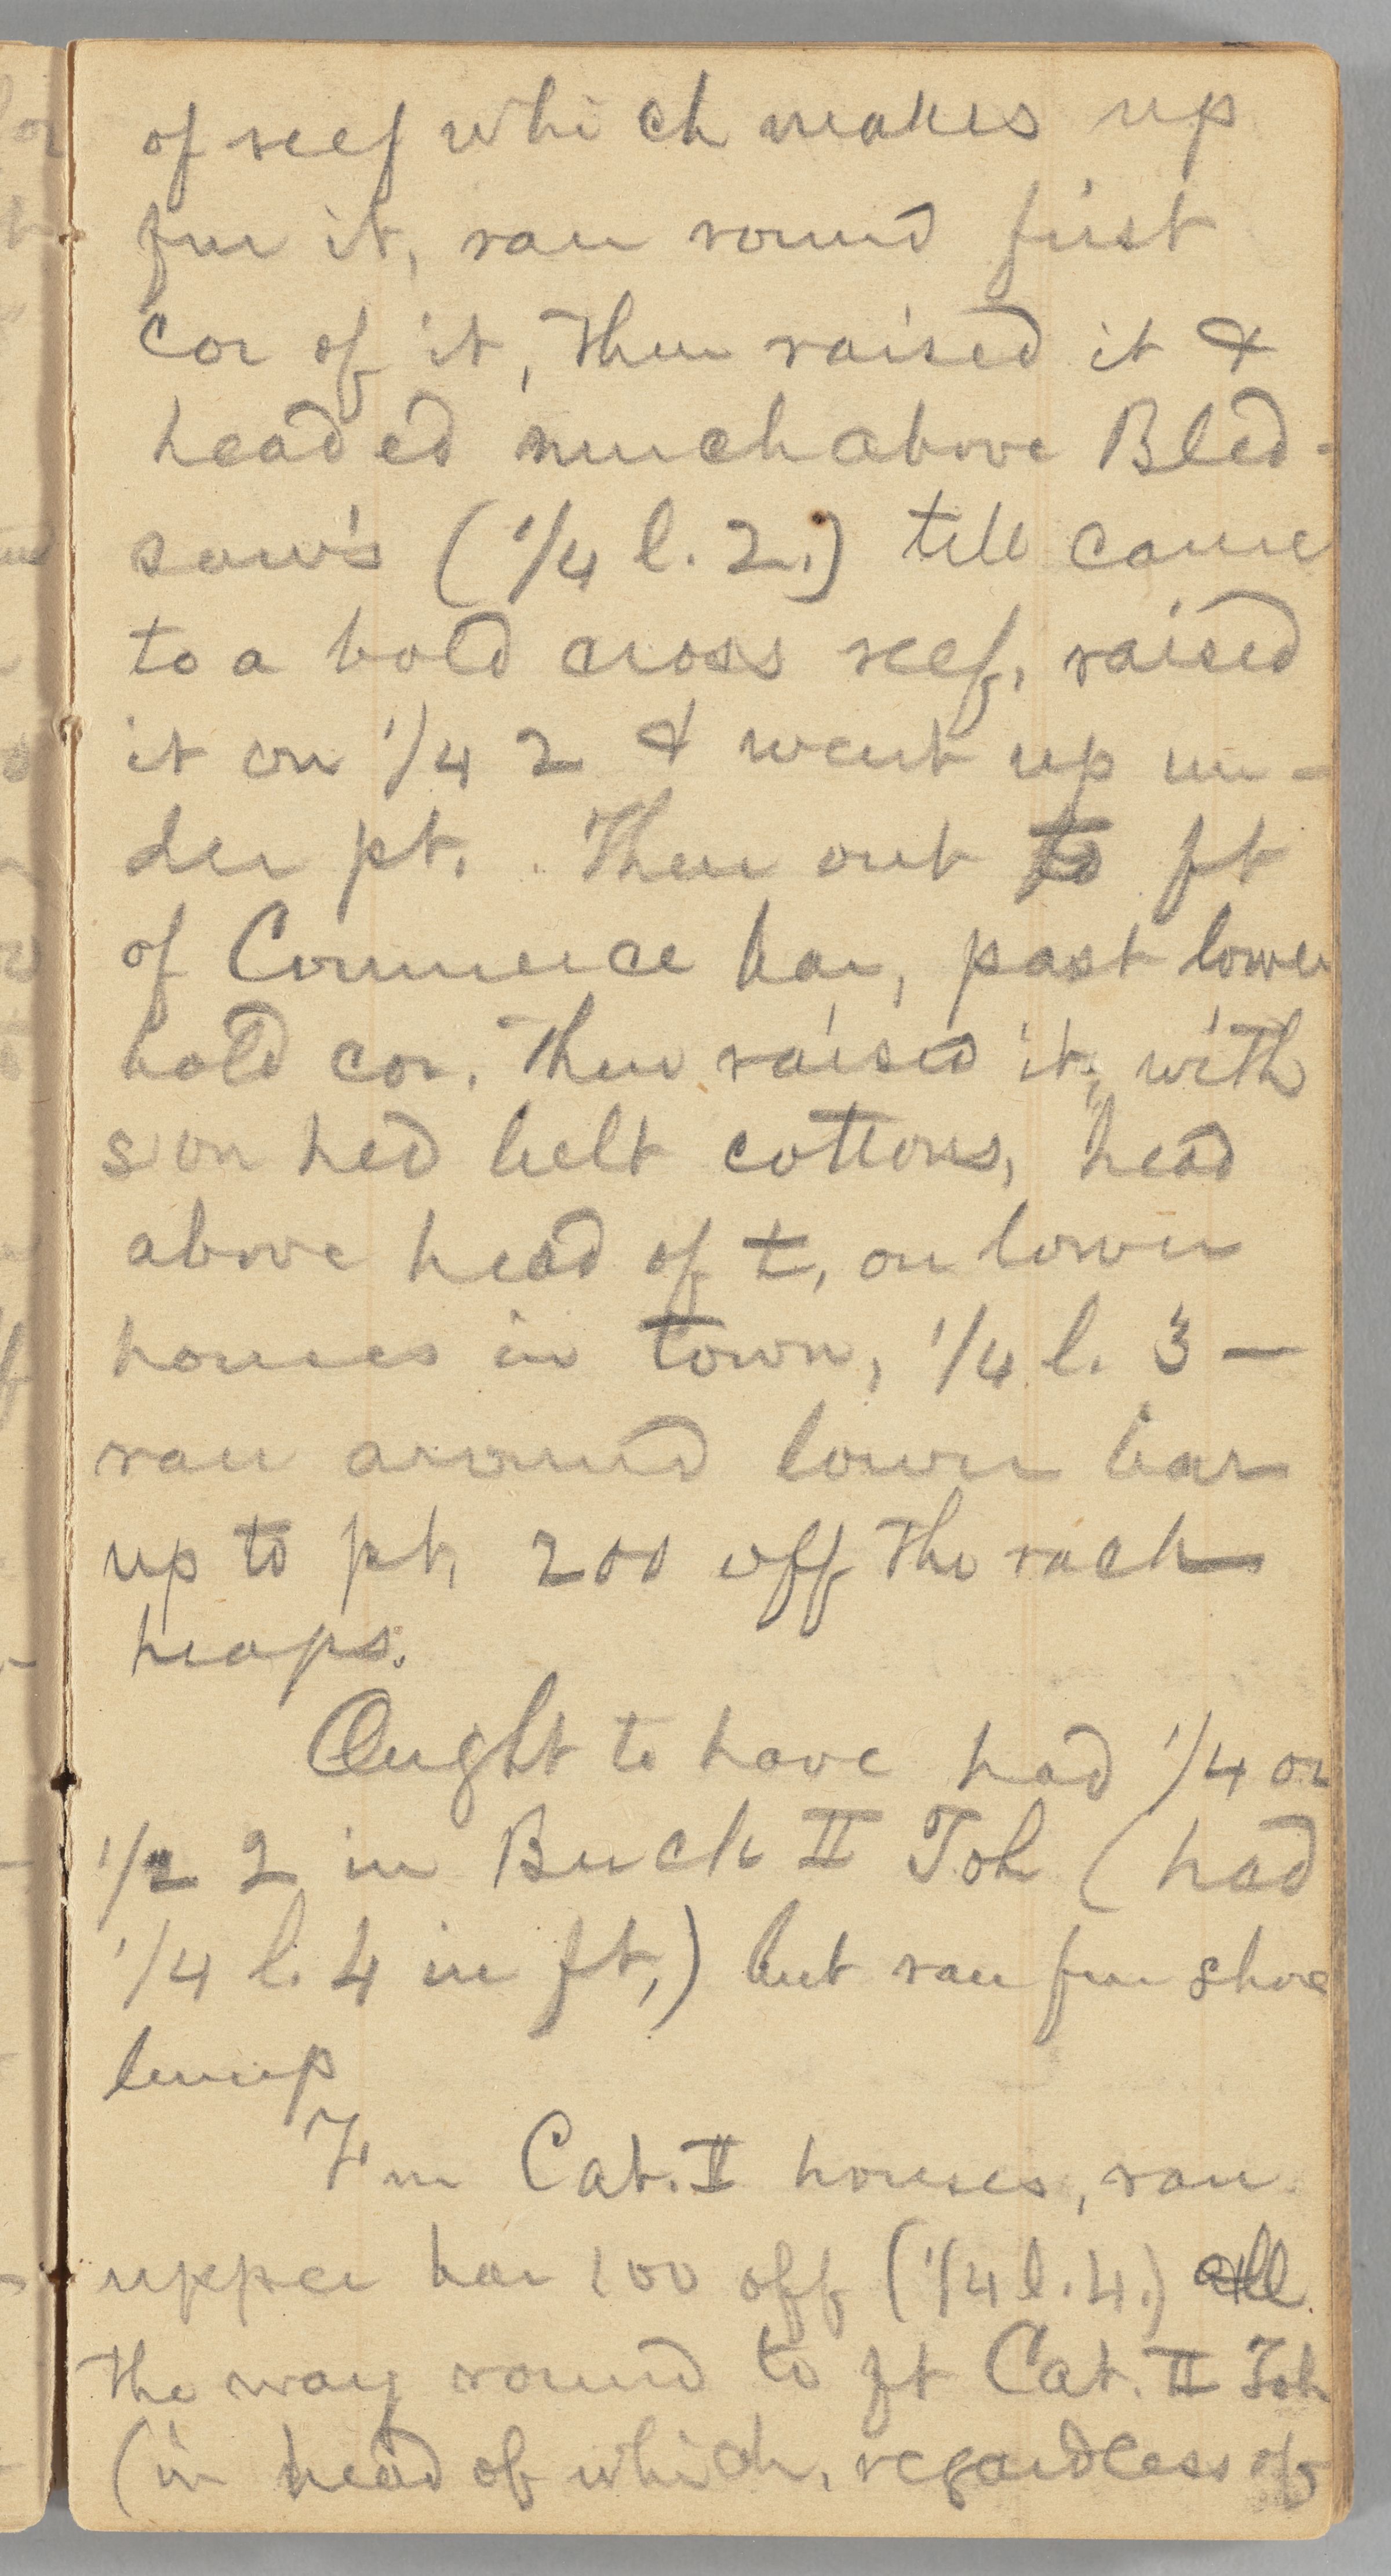 of reef which makes up
fm it, ran round first
cor of it, then raised it &
headed much above Bled-
sow's (1/4 l. 2.) till came
to a bold cross reef, raised
it on 1/4 2 & went up un-
der pt. Then out to ft
of Commerce bar, past lower
bold cor. Then raised it, with
s on hed belt cottons, head
above head of t, on lower
houses in town, 1/4 l. 3 —
ran around lower bar
up to pt, 200 off the rack
heaps.
Ought to have had 1/4 or
1/2 2 in Buck II Toh (had
1/4 l. 4 in ft,) but ran fm shoe
lump
Fm Cat. II houses, ran
upper bar 100 off (1/4 l. 4.) all
the way round to ft Cat. II Toh
(in head of which, regardless of